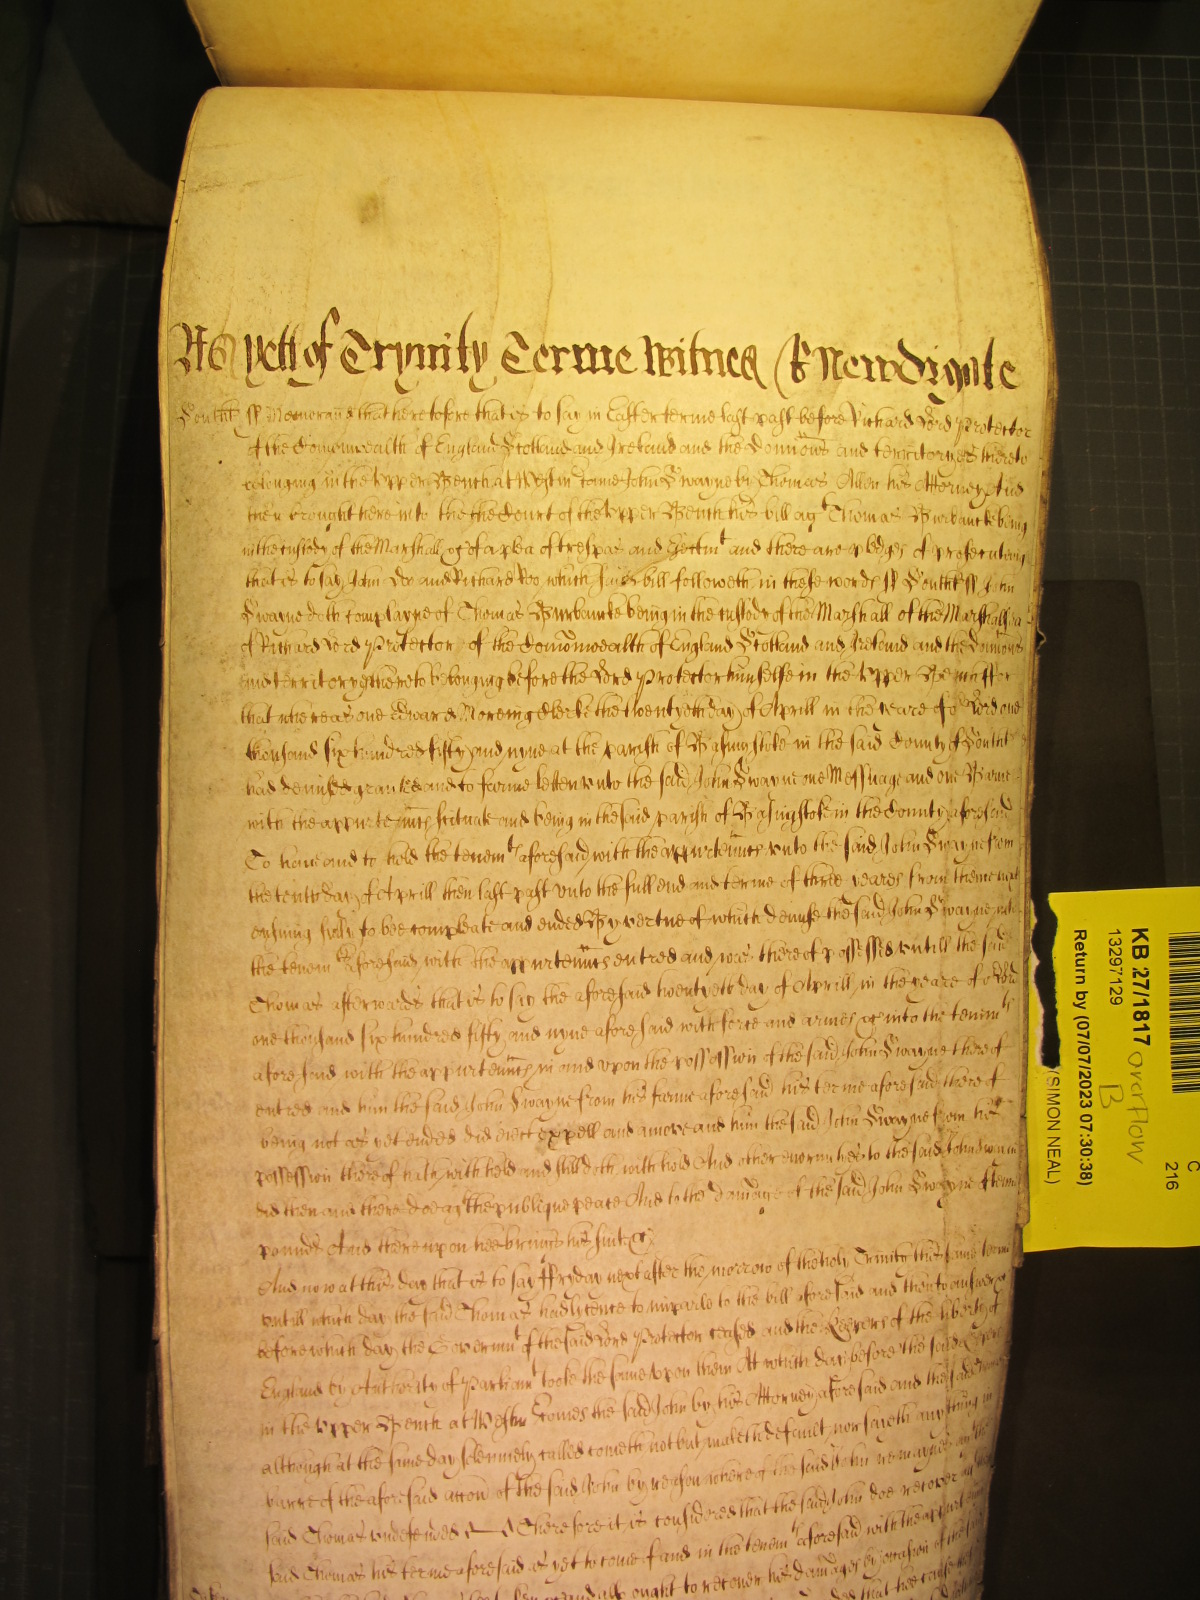 As yett of Trynity Terme Witnes R Newdigate
Southt ss Memorand that heretofore that is to say in Easter terme last past before Richard Lord Protector
of the Comonwealth of England Scotland and Ireland and the Dominions and territoryes thereto
belonging in the Upper Bench at Westm came John Swayne by Thomas Allen his Attorney And
then brought here into the the Court of the Upper Bench his bill agt Thomas Burbancke being
in the custody of the Marshall &c of a plea of trespas and Eiectmt and there are pledges of prosecuting
that is to say John Doe and Richard Roo which bill followeth in these words ss Southt ss John
Swayne doth complayne of Thomas Burbancke being in the custody of the Marshall of the Marshallsea
of Richard Lord Protector of the Comonwealth of England Scotland and Ireland and the Dominions
and territoryes thereto belonging before the Lord Protector himselfe in the Upper Bench for
that whereas one Edward Moreing Clerke the twentyeth day of Aprill in the yeare of or Lord one
thousand six hundred fifty and nyne at the parish of Basingstoke in the said County of Southt
had demised granted and to farme letten unto the said John Swayne one Messuage and one Barne
with the appurtenncs scituate and being in the said parish of Basingstoke in the County aforesaid
To have and to hold the tenemts aforesaid with the appurtenncs unto the said John Swayne from
the tenth day of Aprill then last past unto the full end and terme of three yeares from thence next
ensuing fully to bee compleate and ended By vertue of which demise the said John Swayne into
the tenemts aforesaid with the appurtenncs entred and was thereof possessed untill the said
Thomas afterwards that is to say the aforesaid twentyeth day of Aprill in the yeare of or Lord
one thousand six hundred fifty and nyne aforesaid with force and armes &c into the tenemts
aforesaid with the appurtenncs in and upon the possession of the said John Swayne thereof
entred and him the said John Swayne from his farme aforesaid his terme aforesaid thereof
being not as yet ended did eiect expell and amove and him the said John Swayne from his
possession thereof hath withheld and still doth withhold And other enormityes to the said John Swayne
did then and there doe agt the publique peace And to the damage of the said John Swayne of tenn
pounds And thereupon hee brings his suit &c
And now at this day that is to say ffryday next after the morrow of the holy Trinity this same terme
untill which day the said Thomas had licence to imparle to the bill aforesaid and then to answer &c
before which day the Governmt of the said Lord Protector ceased and the Keepers of the liberty of
England by Authority of Parliamt tooke the same upon them At which day before the said Keepers
in the Upper Bench at Westm Comes the said John by his Attorney aforesaid and the said Thomas
although at the same day solemnely called cometh not but maketh default nor sayeth anything in
barre of the aforesaid accon of the said John by reason whereof the said John remaynes agt the
said Thomas undefended Therefore it is considered that the said John doe recover agt the
said Thomas his terme aforesaid as yet to come of and in the tenemts aforesaid with the appurtenncs
ought to recover his damages by occasion of the
KB 27/1817 overflow
B
13297129
Return by (07/07/2023 07:30:38)
(SIMON NEAL)
C
216